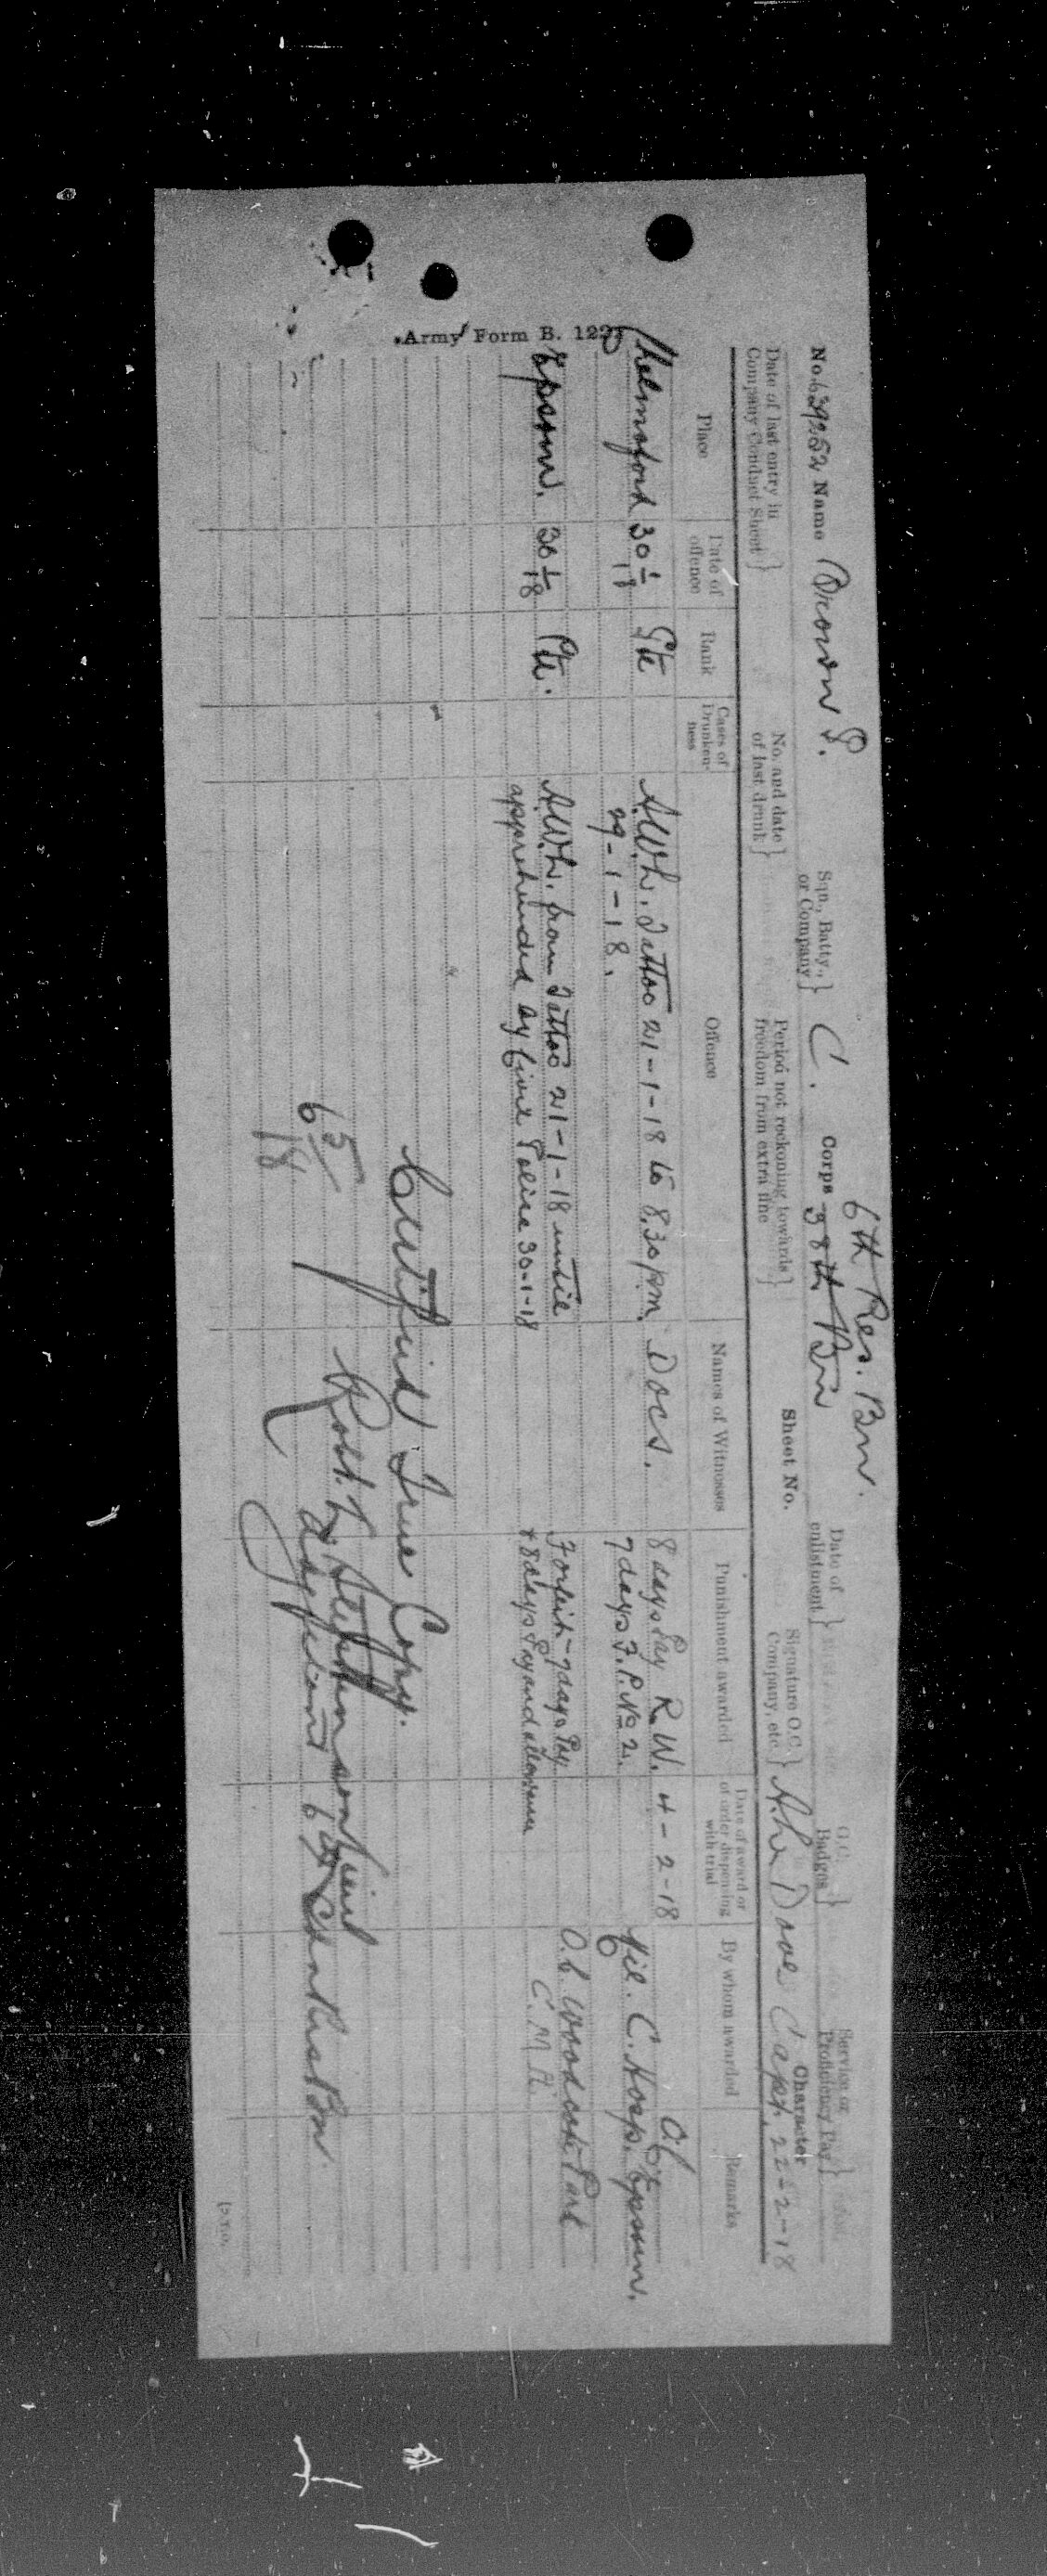 Army Form B. 122
6th Res. Bn.
No. 639252 Name Dicaron P. Sqn., Batty., or Company } C. Corps 38th Bn Date of enlistment } G.C. Badges } Service or Proficiency Pay }
Date of last entry in Company Conduct Sheet } No. and date of last drunk } Period not reckoning towards freedom from extra fine } Sheet No. Signature O.C. Company, etc. } Capt. 22-2-18 Character
Place Date of offence Rank Cases of Drunkenness Offence Names of Witnesses Punishment awarded Date of award or of order dispensing with trial By whom awarded Remarks
Chelmsford 30/1/18 Pte A.W.L. Tattoo 21-1-18 to 8.30 pm. Docs. 8 days Pay R.W. 4-2-18 O.C.
29-1-18. 7 days F.P. No 2. Mil. C. Hosp. Epsom.
Epsom. 30/1/18 Pte. A.W.L. from Tattoo 21-1-18 until Forfeit 7 days Pay O.C. Woodcote Park
apprehended by Civil Police 30-1-18 + 8 days Pay and allowance C.M.H.
Certified True Copy.
Robt. Stephenson Lieut
6/5/18 6th Can Res Bn.